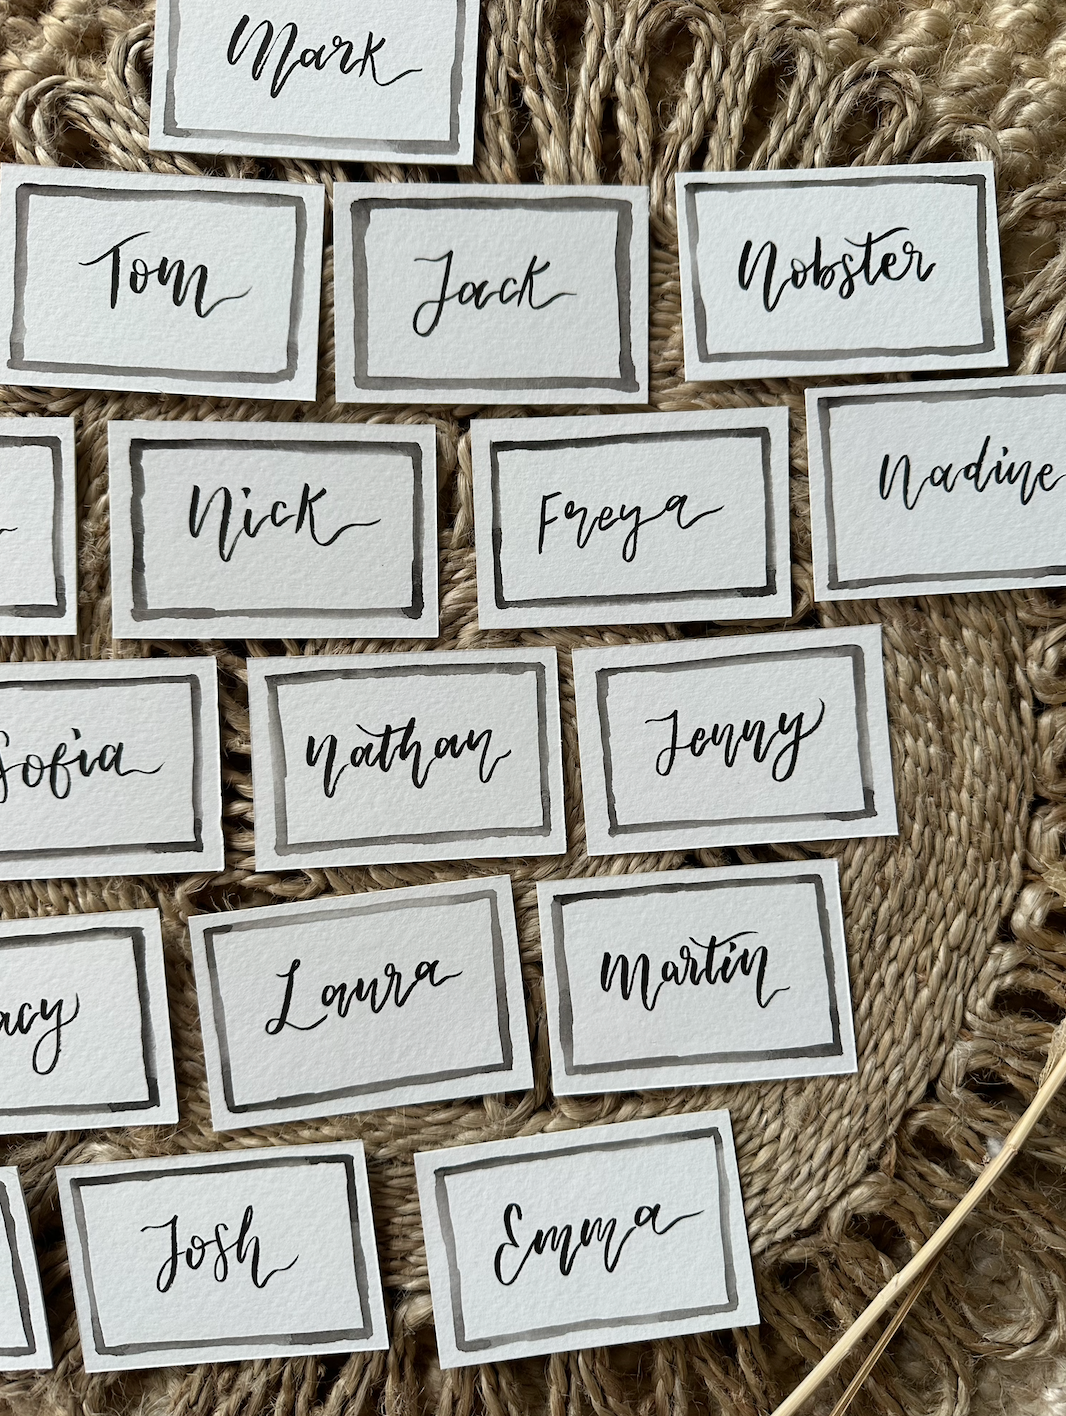 Mark
Tom
Jack
Nobster
Nick
Freya
Nadine
Sofia
Nathan
Jenny
acy
Laura
Martin
Josh
Emma